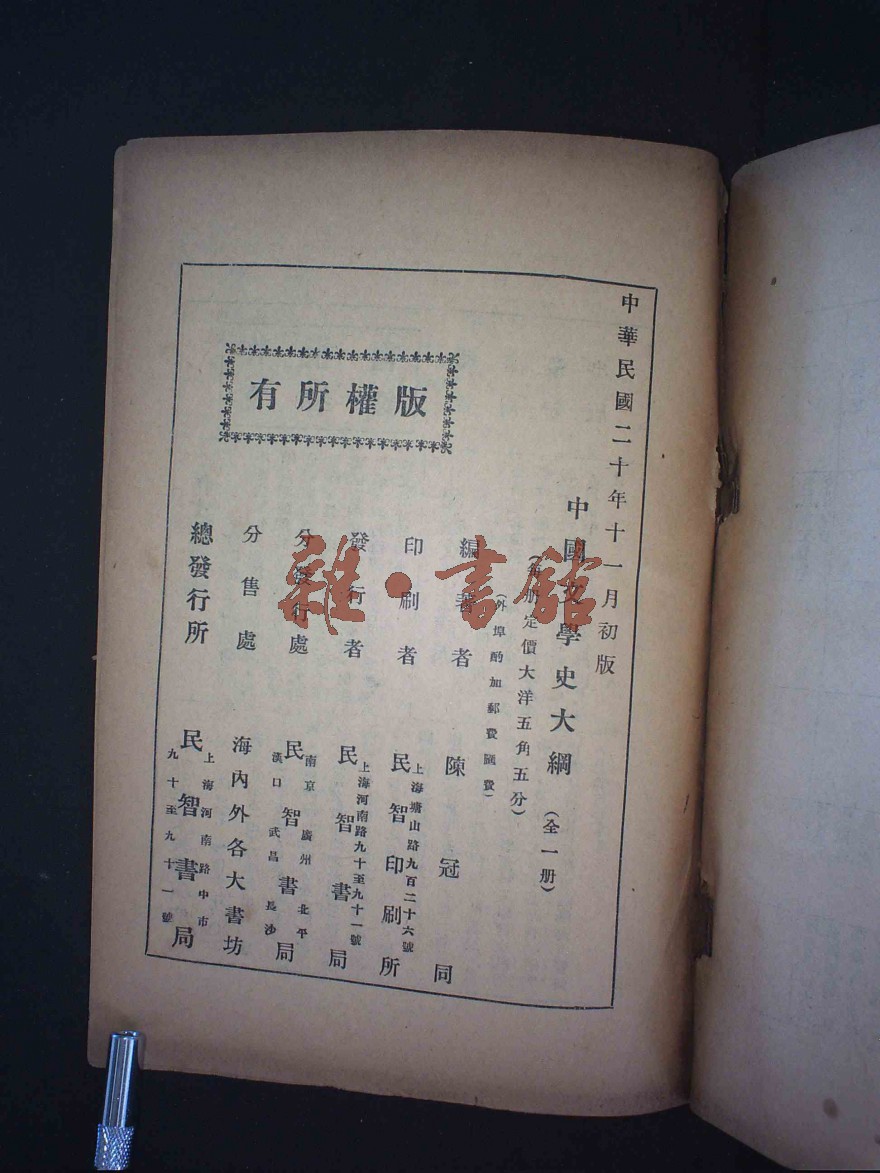 中華民國二十年十一月初版
中國文學史大綱（全一册）
（每册定價大洋五角五分）
（外埠酌加郵費匯費）
編著者 陳冠同
印刷者 上海塘山路九百二十六號 民智印刷所
發行者 上海河南路九十至九十一號 民智書局
分發行處 南京 廣州 北平 民智書局 漢口 武昌 長沙
分售處 海內外各大書坊
總發行所 上海河南路中市 民智書局 九十至九十一號
版權所有
雜·書館